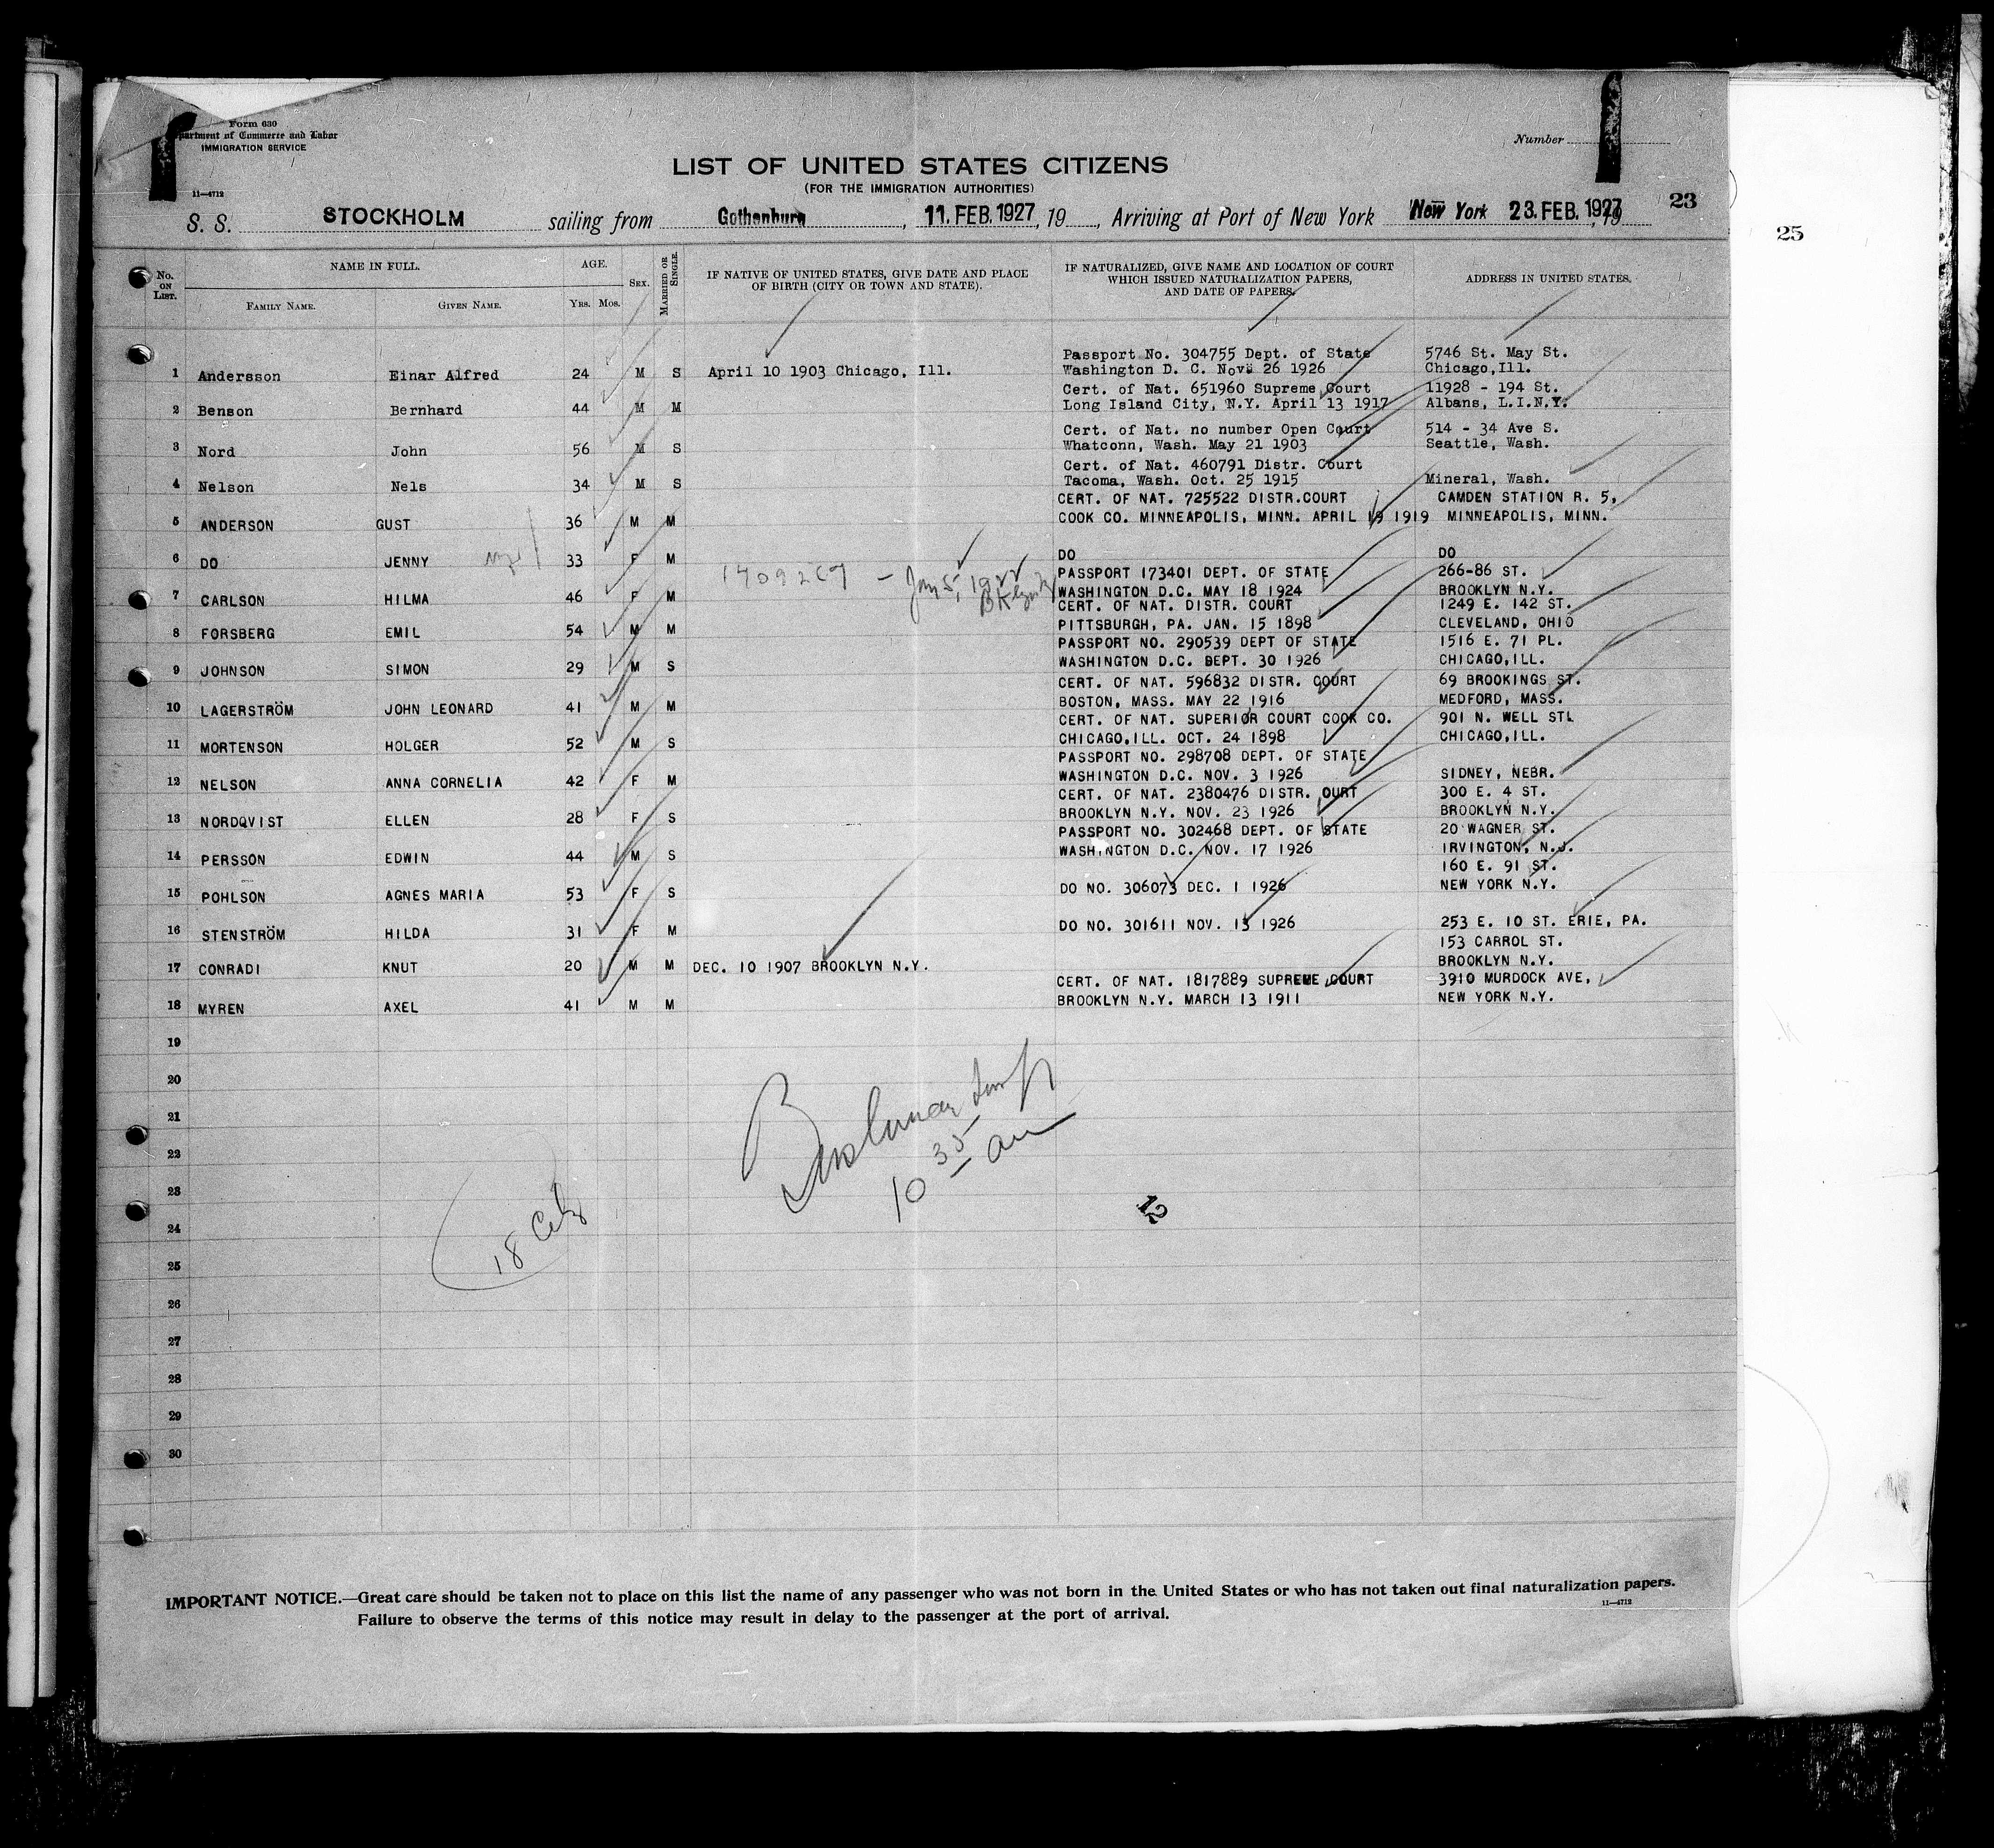 Form 630
Department of Commerce and Labor
IMMIGRATION SERVICE
11—4712
Number
LIST OF UNITED STATES CITIZENS
(FOR THE IMMIGRATION AUTHORITIES)
S. S. STOCKHOLM sailing from Gothenburg, 11. FEB. 1927, 19, Arriving at Port of New York New York 23. FEB. 1927, 19
23
25
No. ON LIST. NAME IN FULL. AGE. SEX. MARRIED OR SINGLE. IF NATIVE OF UNITED STATES, GIVE DATE AND PLACE OF BIRTH (CITY OR TOWN AND STATE). IF NATURALIZED, GIVE NAME AND LOCATION OF COURT WHICH ISSUED NATURALIZATION PAPERS, AND DATE OF PAPERS. ADDRESS IN UNITED STATES.
FAMILY NAME. GIVEN NAME. YRS. MOS.
Passport No. 304755 Dept. of State 5746 St. May St.
1 Andersson Einar Alfred 24 M S April 10 1903 Chicago, Ill. Washington D. C. Nov. 26 1926 Chicago,Ill.
Cert. of Nat. 651960 Supreme Court 11928 - 194 St.
2 Benson Bernhard 44 M M Long Island City, N.Y. April 13 1917 Albans, L.I.N.Y.
Cert. of Nat. no number Open Court 514 - 34 Ave S.
3 Nord John 56 M S Whatconn, Wash. May 21 1903 Seattle, Wash.
Cert. of Nat. 460791 Distr. Court
4 Nelson Nels 34 M S Tacoma, Wash. Oct. 25 1915 Mineral, Wash.
CERT. OF NAT. 725522 DISTR.COURT CAMDEN STATION R. 5,
5 ANDERSON GUST 36 M M COOK CO. MINNEAPOLIS, MINN. APRIL 19 1919 MINNEAPOLIS, MINN.
6 DO JENNY 33 F M DO DO
1409267 - Jan 5, 1922 PASSPORT 173401 DEPT. OF STATE 266-86 ST.
7 CARLSON HILMA 46 F M WASHINGTON D.C. MAY 18 1924 BROOKLYN N.Y.
CERT. OF NAT. DISTR. COURT 1249 E. 142 ST.
8 FORSBERG EMIL 54 M M PITTSBURGH, PA. JAN. 15 1898 CLEVELAND, OHIO
PASSPORT NO. 290539 DEPT OF STATE 1516 E. 71 PL.
9 JOHNSON SIMON 29 M S WASHINGTON D.C. BEPT. 30 1926 CHICAGO,ILL.
CERT. OF NAT. 596832 DISTR. COURT 69 BROOKINGS ST.
10 LAGERSTRÖM JOHN LEONARD 41 M M BOSTON, MASS. MAY 22 1916 MEDFORD, MASS.
CERT. OF NAT. SUPERIOR COURT COOK CO. 901 N. WELL STL
11 MORTENSON HOLGER 52 M S CHICAGO,ILL. OCT. 24 1898 CHICAGO,ILL.
PASSPORT NO. 298708 DEPT. OF STATE
12 NELSON ANNA CORNELIA 42 F M WASHINGTON D.C. NOV. 3 1926 SIDNEY, NEBR.
CERT. OF NAT. 2380476 DISTR. OURT 300 E. 4 ST.
13 NORDQVIST ELLEN 28 F S BROOKLYN N.Y. NOV. 23 1926 BROOKLYN N.Y.
PASSPORT NO. 302468 DEPT. OF STATE 20 WAGNER ST.
14 PERSSON EDWIN 44 M S WASHINGTON D.C. NOV. 17 1926 IRVINGTON, N.J.
160 E. 91 ST.
15 POHLSON AGNES MARIA 53 F S DO NO. 306073 DEC. 1 1926 NEW YORK N.Y.
16 STENSTRÖM HILDA 31 F M DO NO. 301611 NOV. 13 1926 253 E. 10 ST. ERIE, PA.
153 CARROL ST.
17 CONRADI KNUT 20 M M DEC. 10 1907 BROOKLYN N.Y. BROOKLYN N.Y.
CERT. OF NAT. 1817889 SUPREME COURT 3910 MURDOCK AVE,
18 MYREN AXEL 41 M M BROOKLYN N.Y. MARCH 13 1911 NEW YORK N.Y.
19
20
21
22
23
24
25
26
27
28
29
30
10 35 am
12
18
IMPORTANT NOTICE.—Great care should be taken not to place on this list the name of any passenger who was not born in the United States or who has not taken out final naturalization papers.
Failure to observe the terms of this notice may result in delay to the passenger at the port of arrival.
11—4712